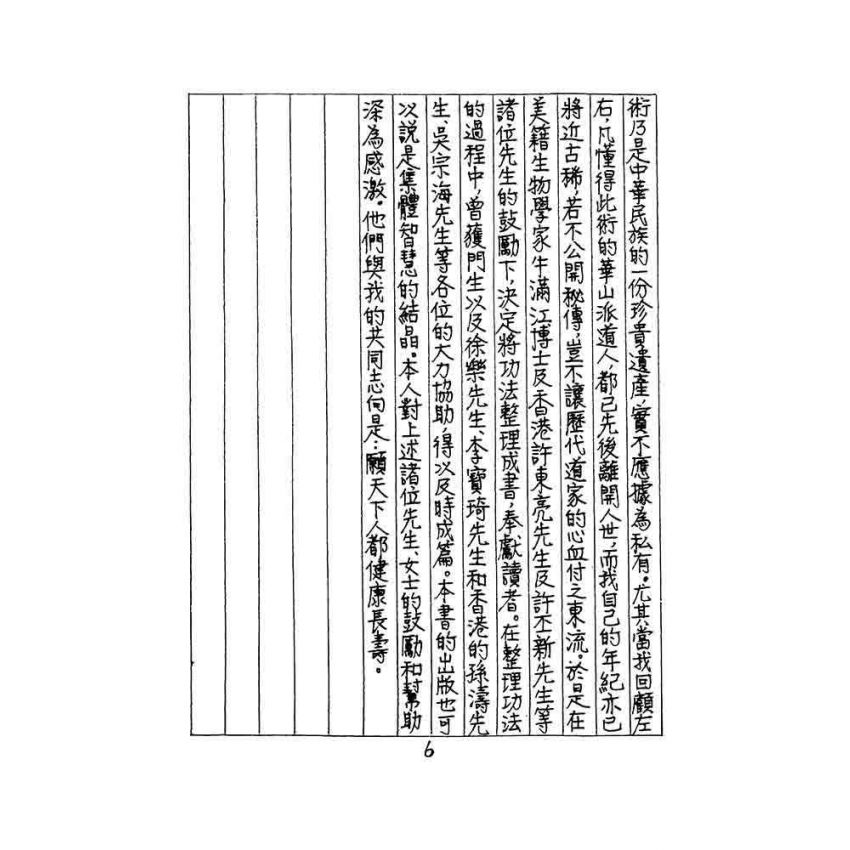 術乃是中華民族的一份珍貴遺產，實不應據為私有。尤其當我回顧左
右，凡懂得此術的華山派道人，都已先後離開人世，而我自己的年紀亦已
將近古稀，若不公開秘傳，豈不讓歷代道家的心血付之東流。於是在
美籍生物學家牛滿江博士及香港許東亮先生及許丕新先生等
諸位先生的鼓勵下，決定將功法整理成書，奉獻讀者。在整理功法
的過程中，曾獲門生以及徐樂先生、李寶琦先生和香港的孫濤先
生、吳宗海先生等各位的大力協助，得以及時成篇。本書的出版也可
以説是集體智慧的結晶。本人對上述諸位先生、女士的鼓勵和幫助
深為感激。他們與我的共同志向是：願天下人都健康長壽。
6